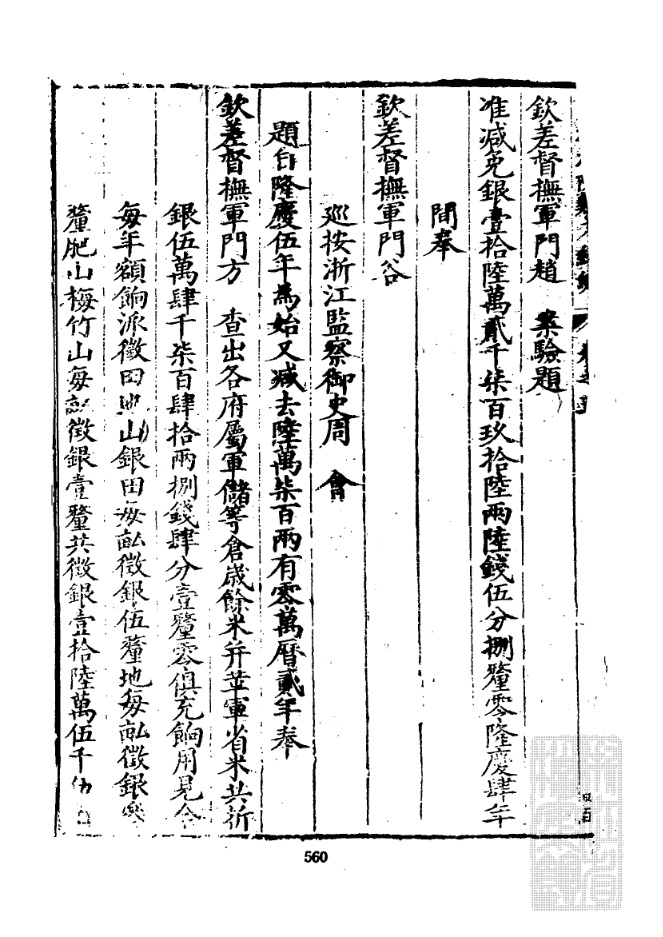 欽差督撫軍門趙　案驗題
准減免銀壹拾陸萬貳千柒百玖拾陸兩陸錢伍分捌釐零隆慶肆年
間奉
欽差督撫軍門谷
巡按浙江監察御史周　會
題自隆慶伍年為始又減去陸萬柒百兩有零萬曆貳年奉
欽差督撫軍門方　查出各府屬軍儲等倉歲餘米并革軍省米共折
銀伍萬肆千柒百肆拾兩捌錢肆分壹釐零俱充餉用見今
每年額餉派徵田地山銀田每畝徵銀伍釐地每畝徵銀
釐肥山梅竹山每畝徵銀壹釐共徵銀壹拾陸萬伍千
560